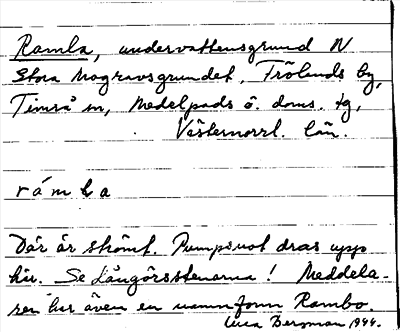 Ramla, undervattensgrund N
Stora Mogravsgrundet, Frölands by,
Timrå sn, Medelpads ö. doms. tg,
Västernorrl. län.
r á m l a
Där är skönt. Pumpsnot dras upp
här. Se Långörsstenarna! Meddela-
ren har även en namnform Rambo.
Bergman 1944.